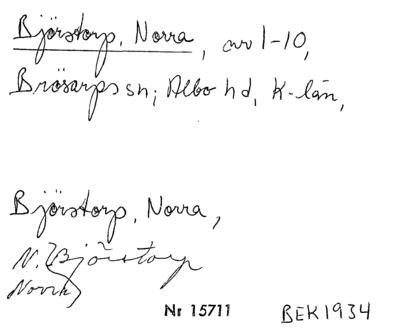 Björstorp, Norra, avs 1-10,
Brösarps sn; Albo hd, K-län,
Björstorp, Norra,
N. Björstorp
Norra
Nr 15711 BEK1934